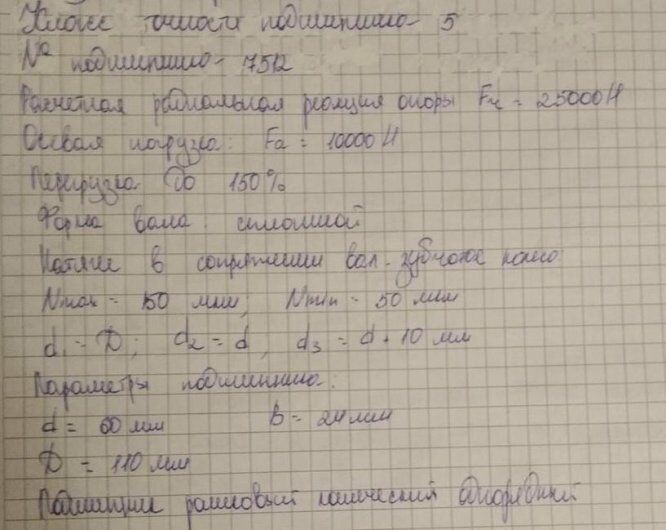 Класс точности подшипника 5
№ подшипника - 7512
Расчетная радиальная реакция опоры Fr = 25000 Н
Осевая нагрузка: Fa = 10000 Н
Перегрузка до 150%
Форма вала: сплошной
Натяг в сопряжении вал - зубчатое колесо
Nmax = 150 мкм; Nmin = 50 мкм
d₁ = D; d₂ = d, d₃ = d + 10 мм
Параметры подшипника:
d = 60 мм B = 24 мм
D = 110 мм
Подшипник роликовый конический однорядный